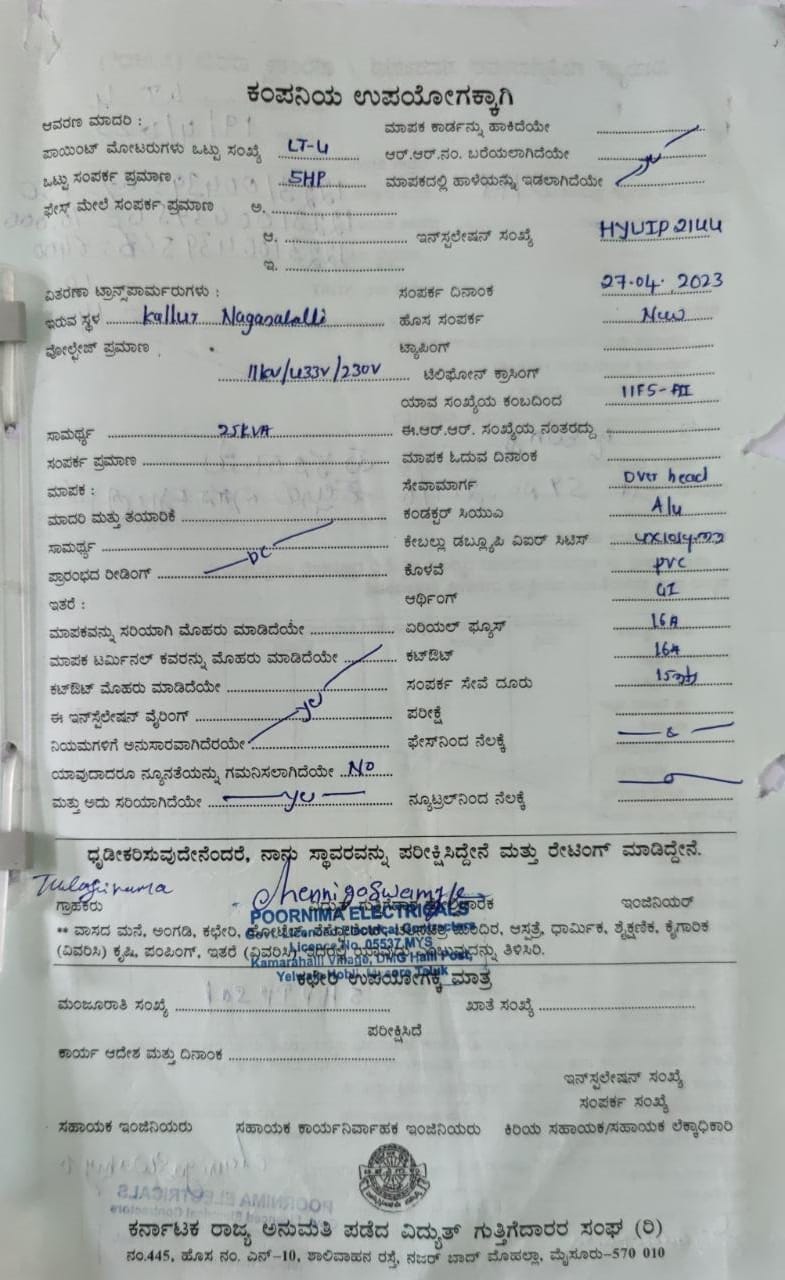 ಕಂಪನಿಯ ಉಪಯೋಗಕ್ಕಾಗಿ
ಆವರಣ ಮಾದರಿ : ಮಾಪಕ ಕಾರ್ಡನ್ನು ಹಾಕಿದೆಯೇ
ಪಾಯಿಂಟ್ ಮೋಟರುಗಳು ಒಟ್ಟು ಸಂಖ್ಯೆ LT-4 ಆರ್.ಆರ್.ನಂ. ಬರೆಯಲಾಗಿದೆಯೇ
ಒಟ್ಟು ಸಂಪರ್ಕ ಪ್ರಮಾಣ 5HP ಮಾಪಕದಲ್ಲಿ ಹಾಳೆಯನ್ನು ಇಡಲಾಗಿದೆಯೇ
ಫೇಸ್ ಮೇಲೆ ಸಂಪರ್ಕ ಪ್ರಮಾಣ ಅ.
ಆ. ಇನ್‌ಸ್ಟಲೇಷನ್ ಸಂಖ್ಯೆ HYUIP2144
ಇ.
ವಿತರಣಾ ಟ್ರಾನ್ಸ್‌ಪಾರ್ಮರುಗಳು : ಸಂಪರ್ಕ ದಿನಾಂಕ 27.04.2023
ಇರುವ ಸ್ಥಳ Kallur Naganahalli ಹೊಸ ಸಂಪರ್ಕ New
ವೋಲ್ಟೇಜ್ ಪ್ರಮಾಣ ಟ್ಯಾಪಿಂಗ್
11kv/433V/230V ಟೆಲಿಫೋನ್ ಕ್ರಾಸಿಂಗ್
ಯಾವ ಸಂಖ್ಯೆಯ ಕಂಬದಿಂದ
ಸಾಮರ್ಥ್ಯ 25KVA ಈ.ಆರ್.ಆರ್. ಸಂಖ್ಯೆಯ ನಂತರದ್ದು
ಸಂಪರ್ಕ ಪ್ರಮಾಣ ಮಾಪಕ ಓದುವ ದಿನಾಂಕ
ಮಾಪಕ : ಸೇವಾಮಾರ್ಗ Over head
ಮಾದರಿ ಮತ್ತು ತಯಾರಿಕೆ ಕಂಡಕ್ಟರ್ ಸಿಯುವಿ Alu
ಸಾಮರ್ಥ್ಯ ಕೇಬಲ್ಲು ಡಬ್ಲ್ಯೂಪಿ ವಿಐರ್ ಸಿಟಿಸ್
ಪ್ರಾರಂಭದ ರೀಡಿಂಗ್ DC ಕೊಳವೆ PVC
ಇತರೆ : ಆರ್ಥಿಂಗ್ GI
ಮಾಪಕವನ್ನು ಸರಿಯಾಗಿ ಮೊಹರು ಮಾಡಿದೆಯೇ ಏರಿಯಲ್ ಫ್ಯೂಸ್ 16A
ಮಾಪಕ ಟರ್ಮಿನಲ್ ಕವರನ್ನು ಮೊಹರು ಮಾಡಿದೆಯೇ ಕಟ್‌ಔಟ್ 16A
ಕಟ್‌ಔಟ್ ಮೊಹರು ಮಾಡಿದೆಯೇ ಸಂಪರ್ಕ ಸೇವೆ ದೂರು
ಈ ಇನ್‌ಸ್ಟೆಲೇಷನ್ ವೈರಿಂಗ್ ಪರೀಕ್ಷೆ
ನಿಯಮಗಳಿಗೆ ಅನುಸಾರವಾಗಿದೆರಯೇ ಫೇಸ್‌ನಿಂದ ನೆಲಕ್ಕೆ
ಯಾವುದಾದರೂ ನ್ಯೂನತೆಯನ್ನು ಗಮನಿಸಲಾಗಿದೆಯೇ No
ಮತ್ತು ಅದು ಸರಿಯಾಗಿದೆಯೇ ನ್ಯೂಟ್ರಲ್‌ನಿಂದ ನೆಲಕ್ಕೆ
ಧೃಡೀಕರಿಸುವುದೇನೆಂದರೆ, ನಾನು ಸ್ಥಾವರವನ್ನು ಪರೀಕ್ಷಿಸಿದ್ದೇನೆ ಮತ್ತು ರೇಟಿಂಗ್ ಮಾಡಿದ್ದೇನೆ.
ಗ್ರಾಹಕರು ಇಂಜಿನಿಯರ್
POORNIMA ELECTRICALS
** ವಾಸದ ಮನೆ, ಅಂಗಡಿ, ಕಛೇರಿ, ಆಸ್ಪತ್ರೆ, ಧಾರ್ಮಿಕ, ಶೈಕ್ಷಣಿಕ, ಕೈಗಾರಿಕ
Licence No. 05537 MYS
(ವಿವರಿಸಿ) ಕೃಷಿ, ಪಂಪಿಂಗ್, ಇತರೆ (ವಿವರಿಸಿ) ತಿಳಿಸಿರಿ.
Kamarahalli Village, DMG Halli Post,
ಕಛೇರಿ ಉಪಯೋಗಕ್ಕೆ ಮಾತ್ರ
ಮಂಜೂರಾತಿ ಸಂಖ್ಯೆ ಖಾತೆ ಸಂಖ್ಯೆ
ಪರೀಕ್ಷಿಸಿದೆ
ಕಾರ್ಯ ಆದೇಶ ಮತ್ತು ದಿನಾಂಕ
ಇನ್‌ಸ್ಟಲೇಷನ್ ಸಂಖ್ಯೆ
ಸಂಪರ್ಕ ಸಂಖ್ಯೆ
ಸಹಾಯಕ ಇಂಜಿನಿಯರು ಸಹಾಯಕ ಕಾರ್ಯನಿರ್ವಾಹಕ ಇಂಜಿನಿಯರು ಕಿರಿಯ ಸಹಾಯಕ/ಸಹಾಯಕ ಲೆಕ್ಕಾಧಿಕಾರಿ
ಕರ್ನಾಟಕ ರಾಜ್ಯ ಅನುಮತಿ ಪಡೆದ ವಿದ್ಯುತ್ ಗುತ್ತಿಗೆದಾರರ ಸಂಘ (ರಿ)
ನಂ.445, ಹೊಸ ನಂ. ಎನ್-10, ಶಾಲಿವಾಹನ ರಸ್ತೆ, ನಜರ್ ಬಾದ್ ಮೊಹಲ್ಲಾ, ಮೈಸೂರು-570 010